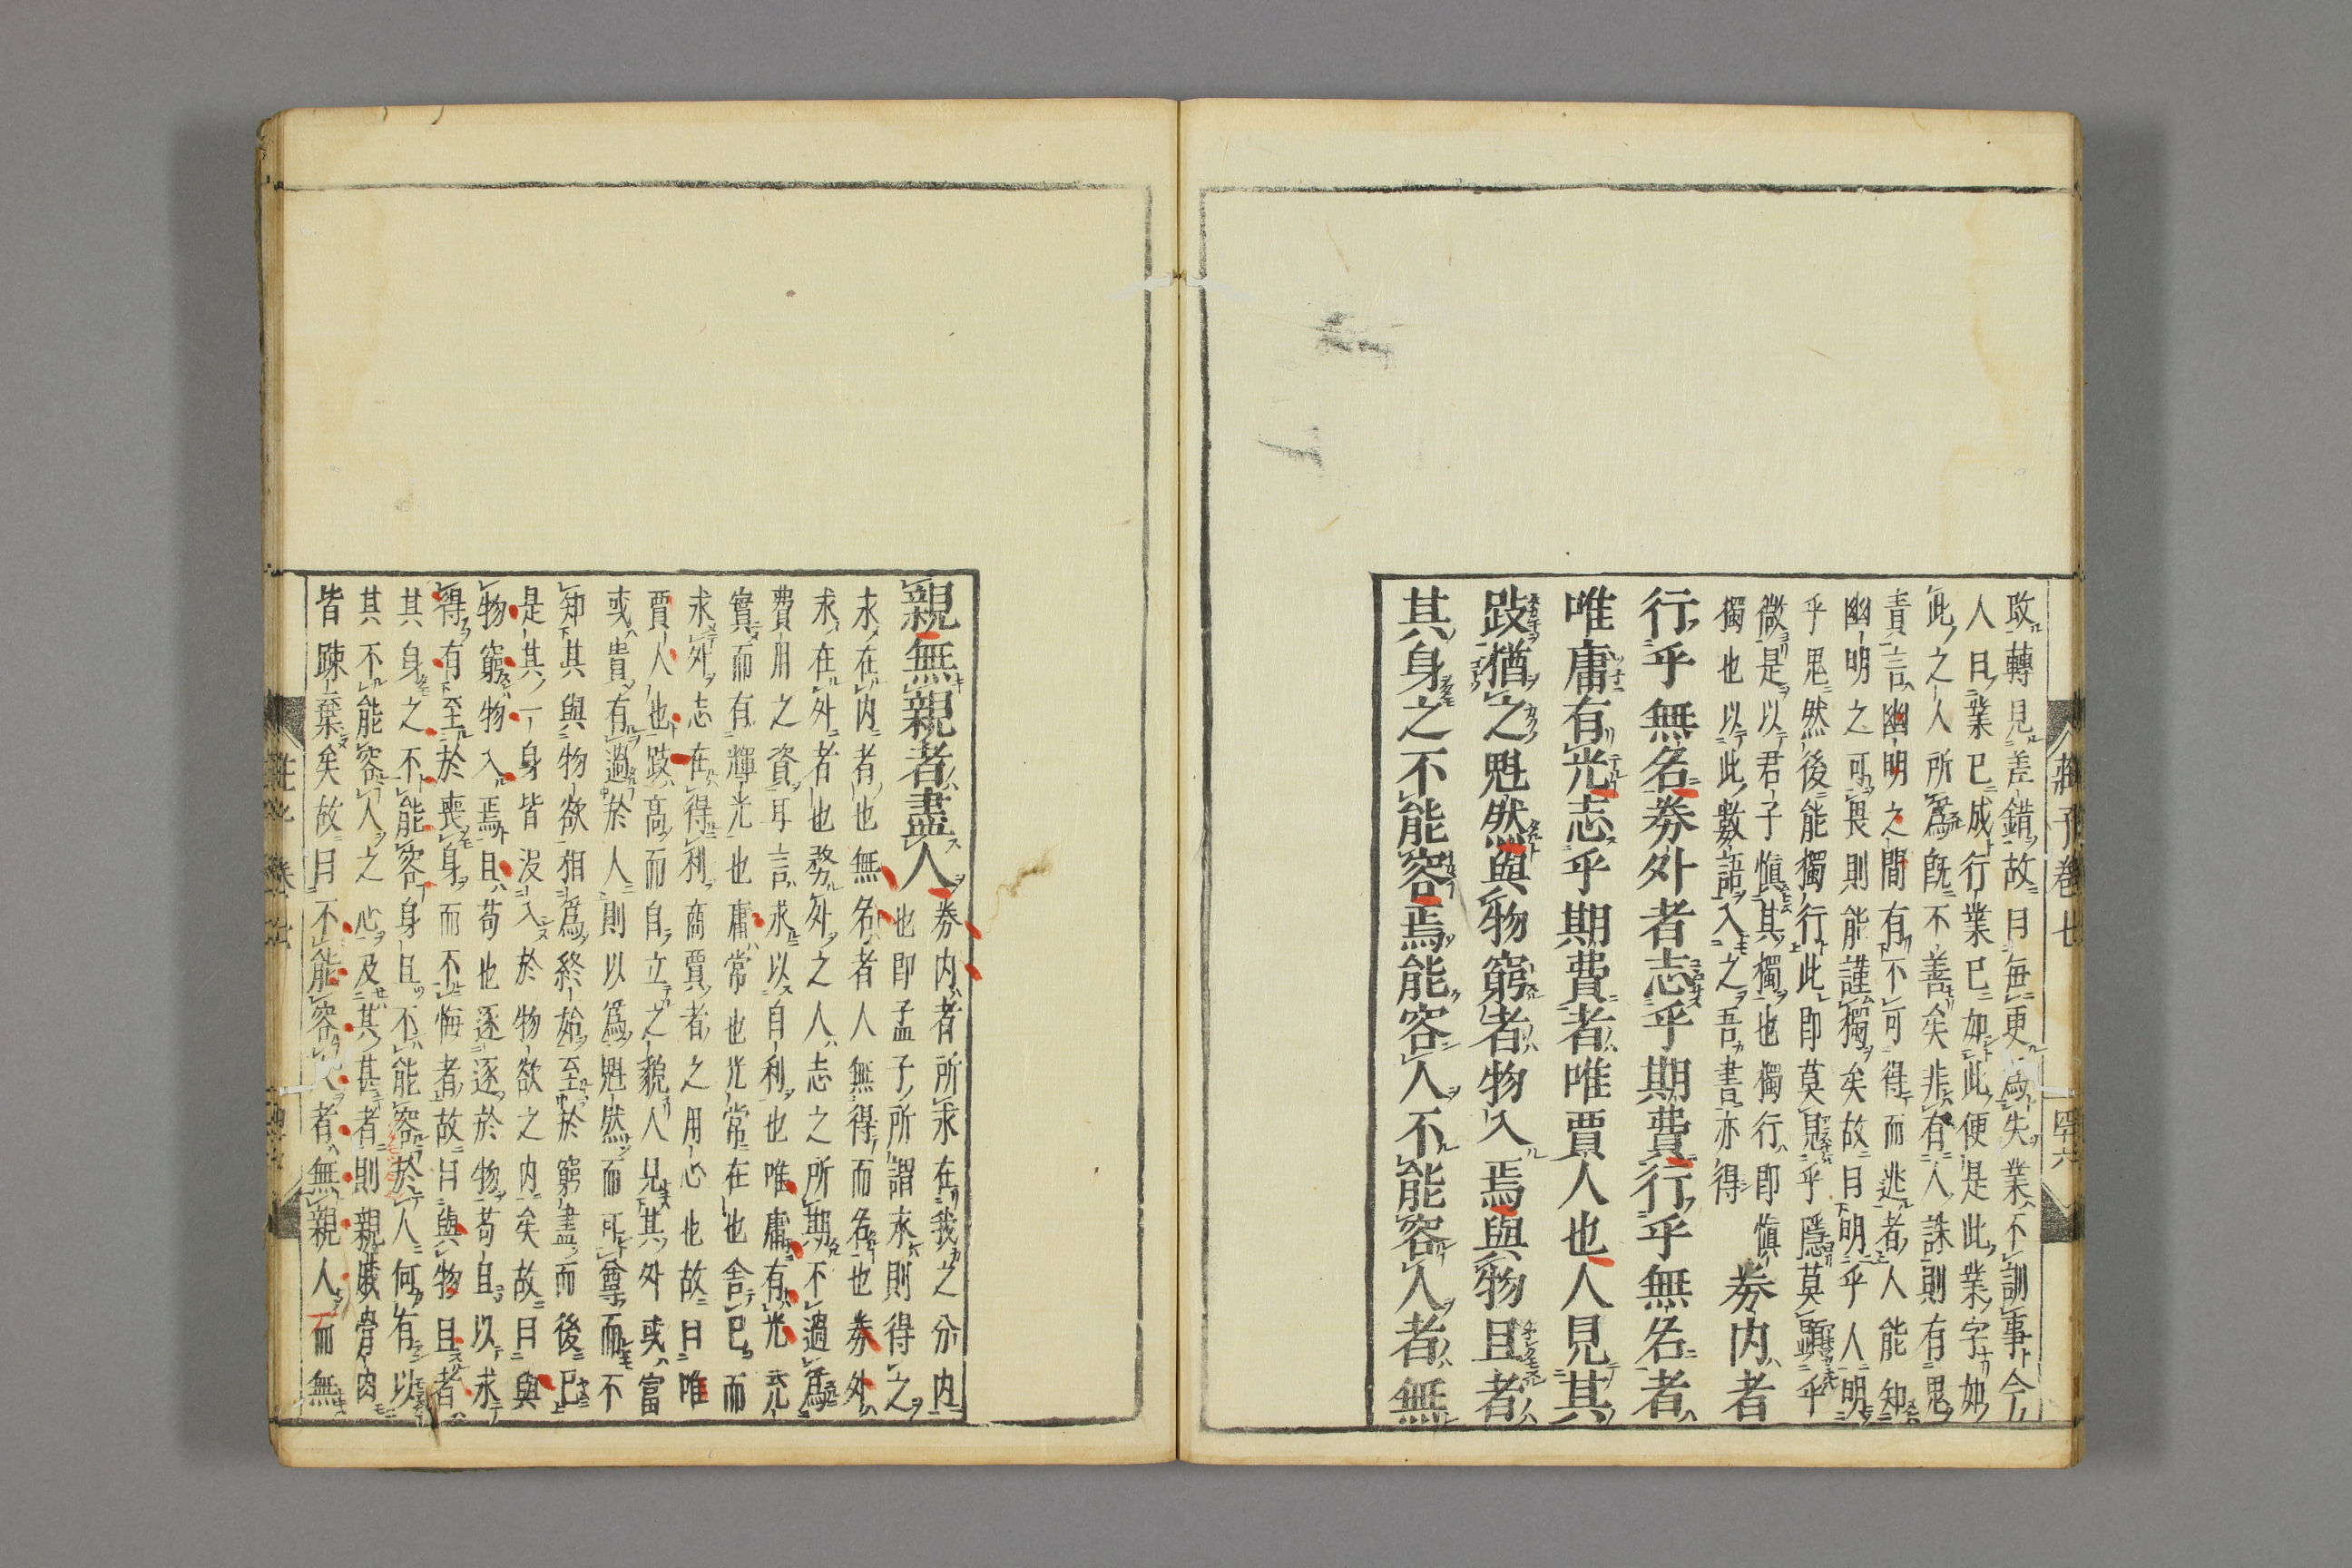 莊子卷七
四十六
改轉見差錯故曰每更爲失業不訓事今
人曰業已成行業已如此便是此業字如
此之人所爲既不善矣非有人誅則有鬼
責言幽明之間有不可得而逃者人能知
幽明之可畏則能謹獨矣故曰明乎人明
乎鬼然後能獨行此即莫見乎隱莫顯乎
微是以君子慎其獨也獨行即慎
獨也以此數語入之吾書亦得
券内者
行乎無名券外者志乎期費行乎無名者
唯庸有光志乎期費者唯賈人也人見其
跂猶之魁然與物窮者物入焉與物且者
其身之不能容焉能容人不能容人者無
親無親者盡人
券内者所求在我之分内
也即孟子所謂求則得之
求在内者也無名者人無得而名也券外
求在外者也務外之人志之所期不過爲
費用之資耳言求以自利也唯庸有光充
實而有輝光也庸常也光常在也舍已而
求外志在得利商賈者之用心也故曰唯
賈人也跂高而自立之貌人見其外或富
或貴有過於人則以爲魁然而可尊而不
知其與物欲相爲終始至於窮盡而後已
是其一身皆没入於物欲之内矣故曰與
物窮物入焉且苟也逐逐於物苟且以求
得有至於喪身而不悔者故曰與物且者
其身之不能容身且不能容於人何有以
其不能容人之心及其甚者則親戚骨肉
皆踈棄矣故曰不能容人者無親人而無